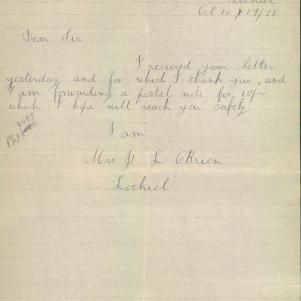 Lochiel
Oct 10, 1918
Dear Sir
I recieved your letter
yesterday and for which I thank you, and
I am forwarding a postal note for 10/-
which I hope will reach you safely
I am
Mrs J L OBrien
Lochiel